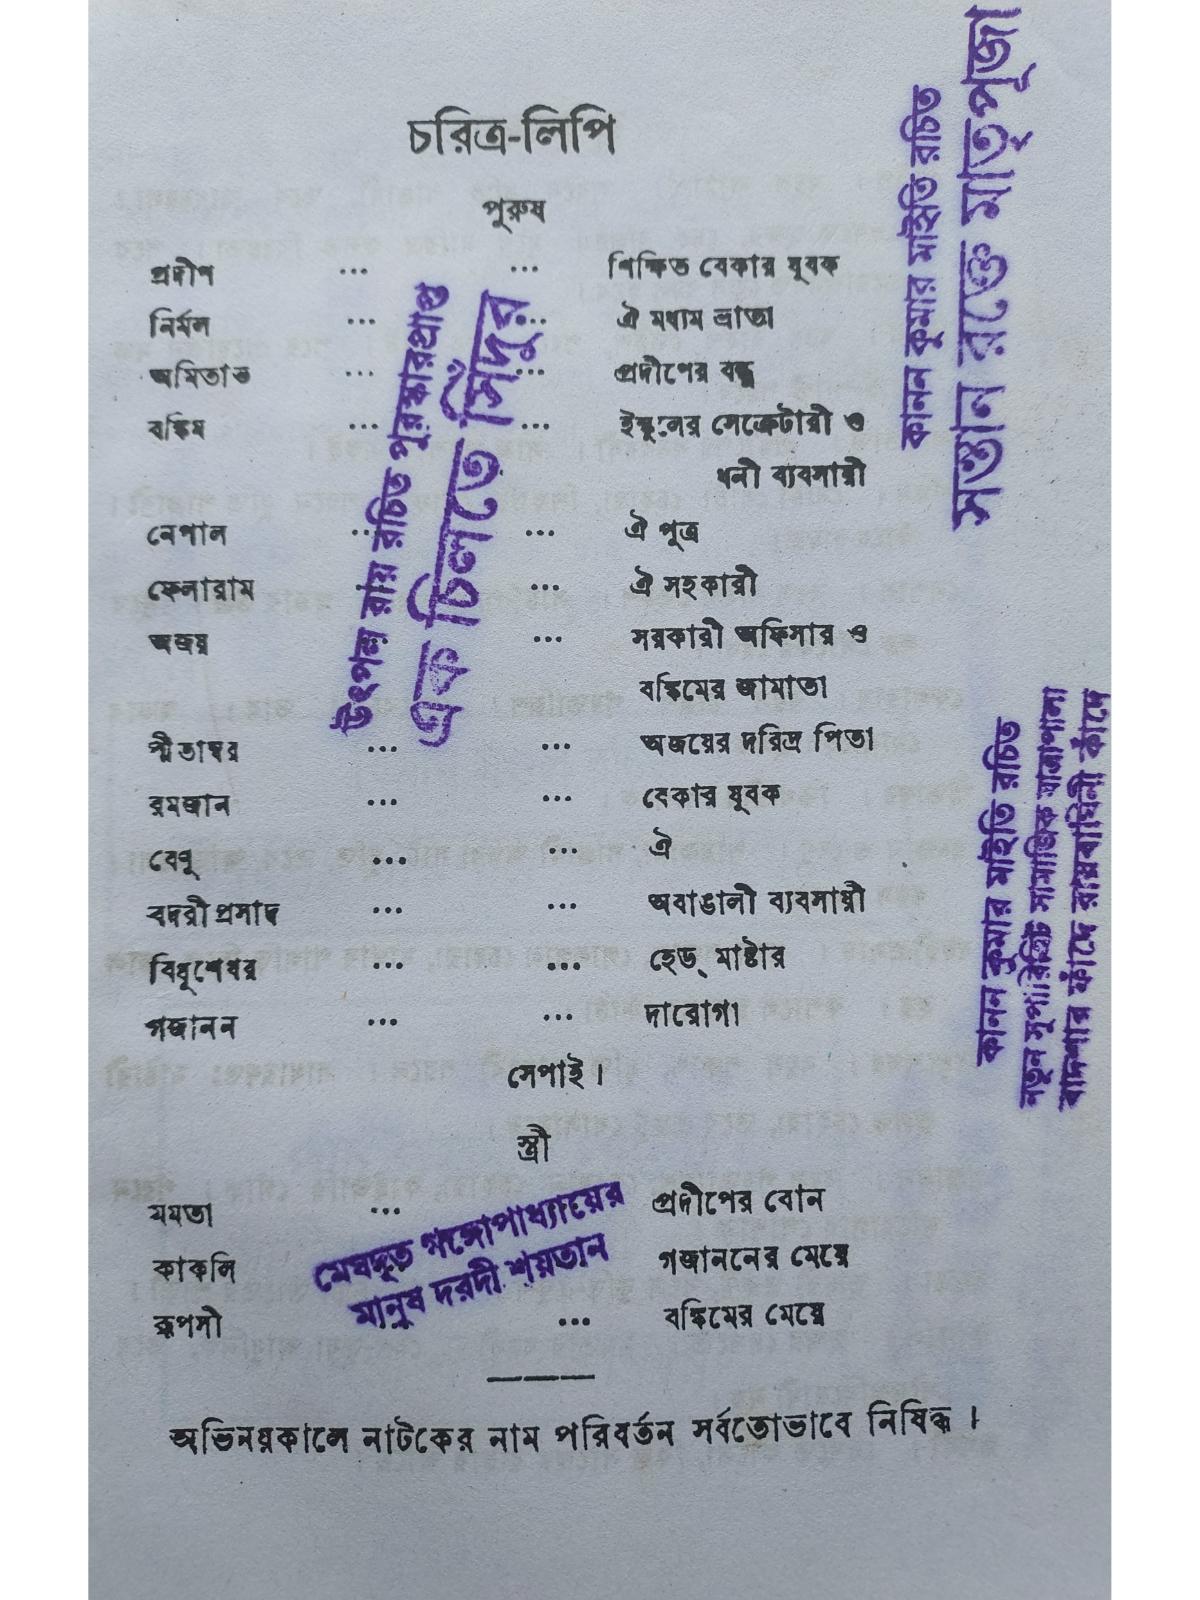 চরিত্র-লিপি
পুরুষ
প্রদীপ ... ... শিক্ষিত বেকার যুবক
নির্মল ... ... ঐ মধ্যম ভ্রাতা
অমিতাভ ... ... প্রদীপের বন্ধু
বঙ্কিম ... ... ইস্কুলের সেক্রেটারী ও
ধনী ব্যবসায়ী
নেপাল ... ... ঐ পুত্র
ফেলারাম ... ... ঐ সহকারী
অজয় ... ... সরকারী অফিসার ও
বঙ্কিমের জামাতা
পীতাম্বর ... ... অজয়ের দরিদ্র পিতা
রমজান ... ... বেকার যুবক
বেণু ... ... ঐ
বদরীপ্রসাদ ... ... অবাঙালী ব্যবসায়ী
বিধুশেখর ... ... হেড্ মাষ্টার
গজানন ... ... দারোগা
সেপাই।
স্ত্রী
মমতা ... প্রদীপের বোন
কাকলি গজাননের মেয়ে
রূপসী ... বঙ্কিমের মেয়ে
অভিনয়কালে নাটকের নাম পরিবর্তন সর্বতোভাবে নিষিদ্ধ।
উৎপল রায় রচিত পুরস্কারপ্রাপ্ত
এক চিলতে সিঁদুর
কানন কুমার মাইতি রচিত
সন্তান রক্তে মাতৃপূজা
কানন কুমার মাইতি রচিত
নতুন সুপারহিট সামাজিক যাত্রাপালা
বাদশার ফাঁদে রায়বাঘিনী কাঁদে
মেঘদূত গঙ্গোপাধ্যায়ের
মানুষ দরদী শয়তান